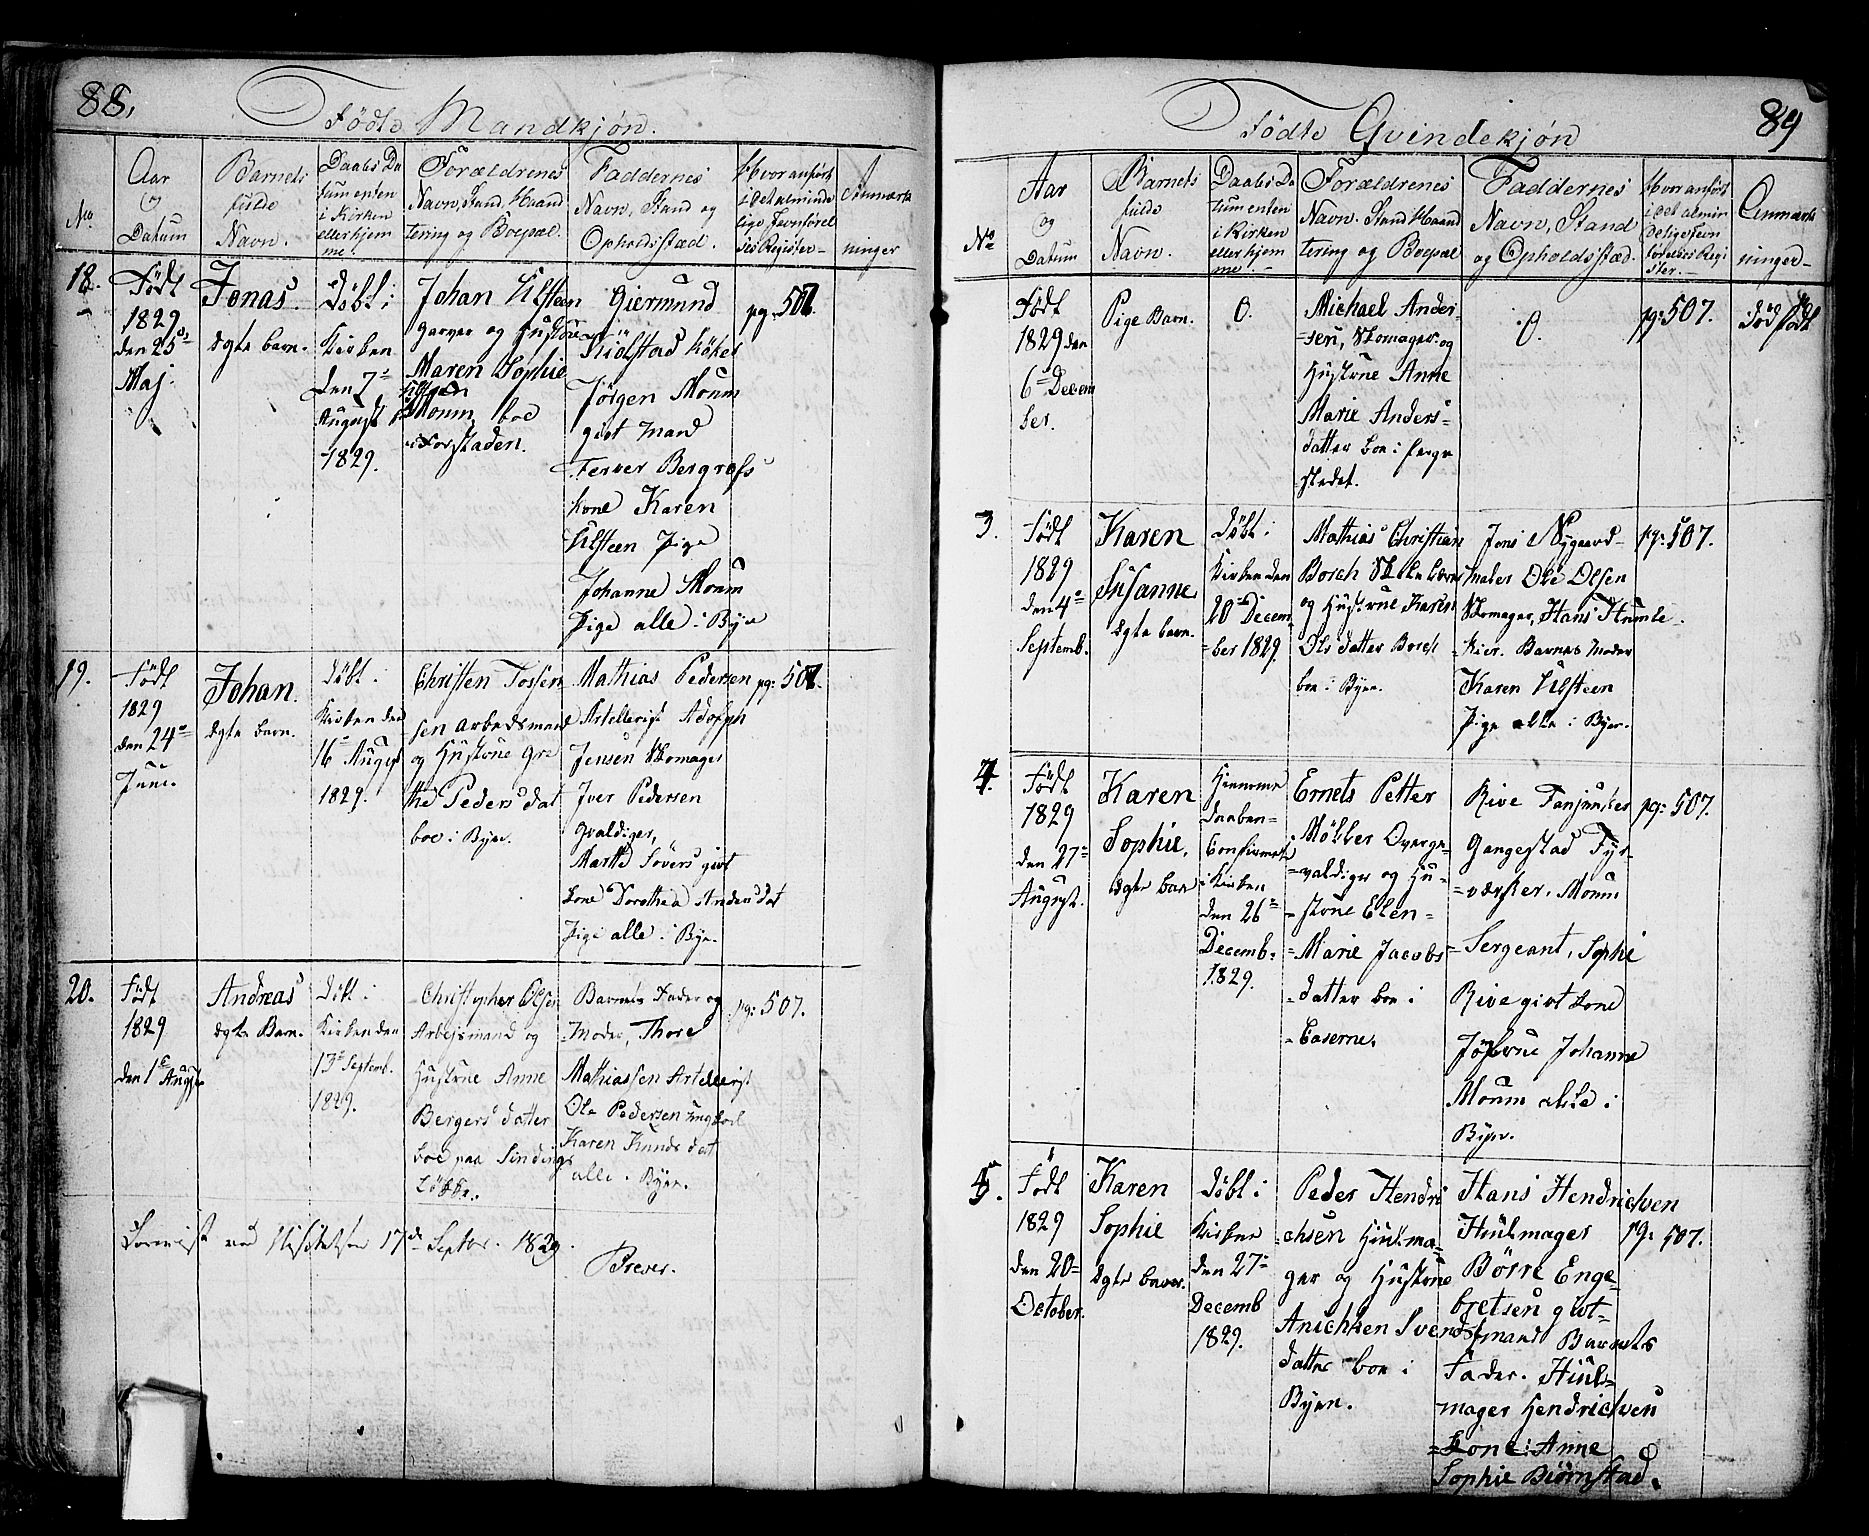 88.
Födte Mandkjön.
No.
Aar
og
Datum
Barnets
fulde
Navn.
Daabs Da
tumenten
i Kirken
eller hjem
me.
Forældrenes
Navn, Stand, Haand
tering og Boepæl.
Faddernes
Navn, Stand og
Opholdsstæd.
Hvor anført
i det alminde
lige Jevnförel
ses Register
Anmærk
ninger
18.
Födt
1829
den 25de
Maj.
Jonas
ægte barn.
Döbt i
Kirken
den 7de
August
1829.
Johan Ulsteen
garver og Hustrue
Maren Sophie
Moum, boe
i Forstaden.
Giermund
Kiölstad
Jörgen Moum
givt Mand
Ferver Bergrafs
kone Karen
Ulsteen Pige
Johanne Moum
Pige alle i Bÿen
pg. 507.
19.
Födt
1829
den 24de
Juni.
Johan
ægte barn.
Döbt i
Kirken den
16de August
1829.
Christen Tossen
sen arbedsmand
og Hustrue Gre
the Peders dat
boe i Bÿen.
Mathias Pedersen
Artellerist Adolph
Jensen Skomager
Iver Pedersen
Gvaldiger,
Marthe Sövers givt
kone Dorothea Anders dat
Pige alle i Bÿen.
pg: 507.
20.
Födt
1829
den 1de August
Andreas
ægte Barn.
Döbt i
Kirken den
13de Septemb.
1829.
Christopher Olsen
Arbejsmand og
Hustrue Anne
Bergers datter
boe paa Sindings
Lökke.
Barnets Fader og
Moder, Thore
Mathiassen Artellerist
Ole Pedersen ungkarl
Karen Knuds dat
alle i Bÿen.
pg: 507.
ved Visitatsen 17de Septbr. 1829.
Brever.
89
Födte Qvindekjön
No
Aar
og
Datum
Barnets
fulde
Navn.
Daabs Da
tumenten
i Kirken
eller hjem
me.
Forældrenes
Navn. Stand Haand
tering og Boepæl
Faddernes
Navn, Stand
og Opholdsstæd.
Hvor anfört
i det almin
delige Jevn
förelses Regi
ster.
Anmærk
ninger
Födt
1829 den
6te Decem
ber.
Pige Barn.
0.
Michael Ander-
-sen, Skomager og
Hustrue Anne
Marie Anders-
datter boe i Forge
stedet.
0.
pg: 507.
Död födt
3.
Födt
1829
den 4de
Septemb.
Karen
Susanne
ægte barn.
Döbt i
Kirken den
20de Decem
-ber 1829.
Mathias Christian
Borch
og Hustrue Karen
Ols datter Borch
boe i Bÿen.
Jens Nygaard-
maler Ole Olsen
Skomager, Hans Humle
Kier. Barnets Moder
Karen Ulsteen
Pige alle i Bÿen.
pg: 507.
4.
Födt
1829
den 27de
August.
Karen
Sophie,
ægte barn
Hiemme
daaben
Confirmert
i Kirken
den 26de
Decemb.
1829.
Ernets Petter
Mökler Overge-
-valdiger og Hu-
-strue Elen-
-Marie Jacobs-
-datter boe i
-Caserne.
Rive Fenjunker
Gangestad Fyr-
-værker. Moum
-Sergeant, Sophi
Rive givt kone
Jomfrue Johanne
Moum alle i
Bÿen.
pg: 507.
5.
Födt
1829
den 20de
October.
Karen
Sophie
ægte barn.
Döbt i
Kirken
den 27de
Decemb
1829.
Peder Hendri
chsen Hiulma-
ger og Hustrue
Anichken Svends
datter boe i
Bÿen.
Hans Hendrichsen
Hiulmager
Börre Enge-
bretsen givt-
mand Barnets
Fader. Hiul-
mager Hendrichsen
-kone: Anne
Sophie Biörnstad.
pg: 507.